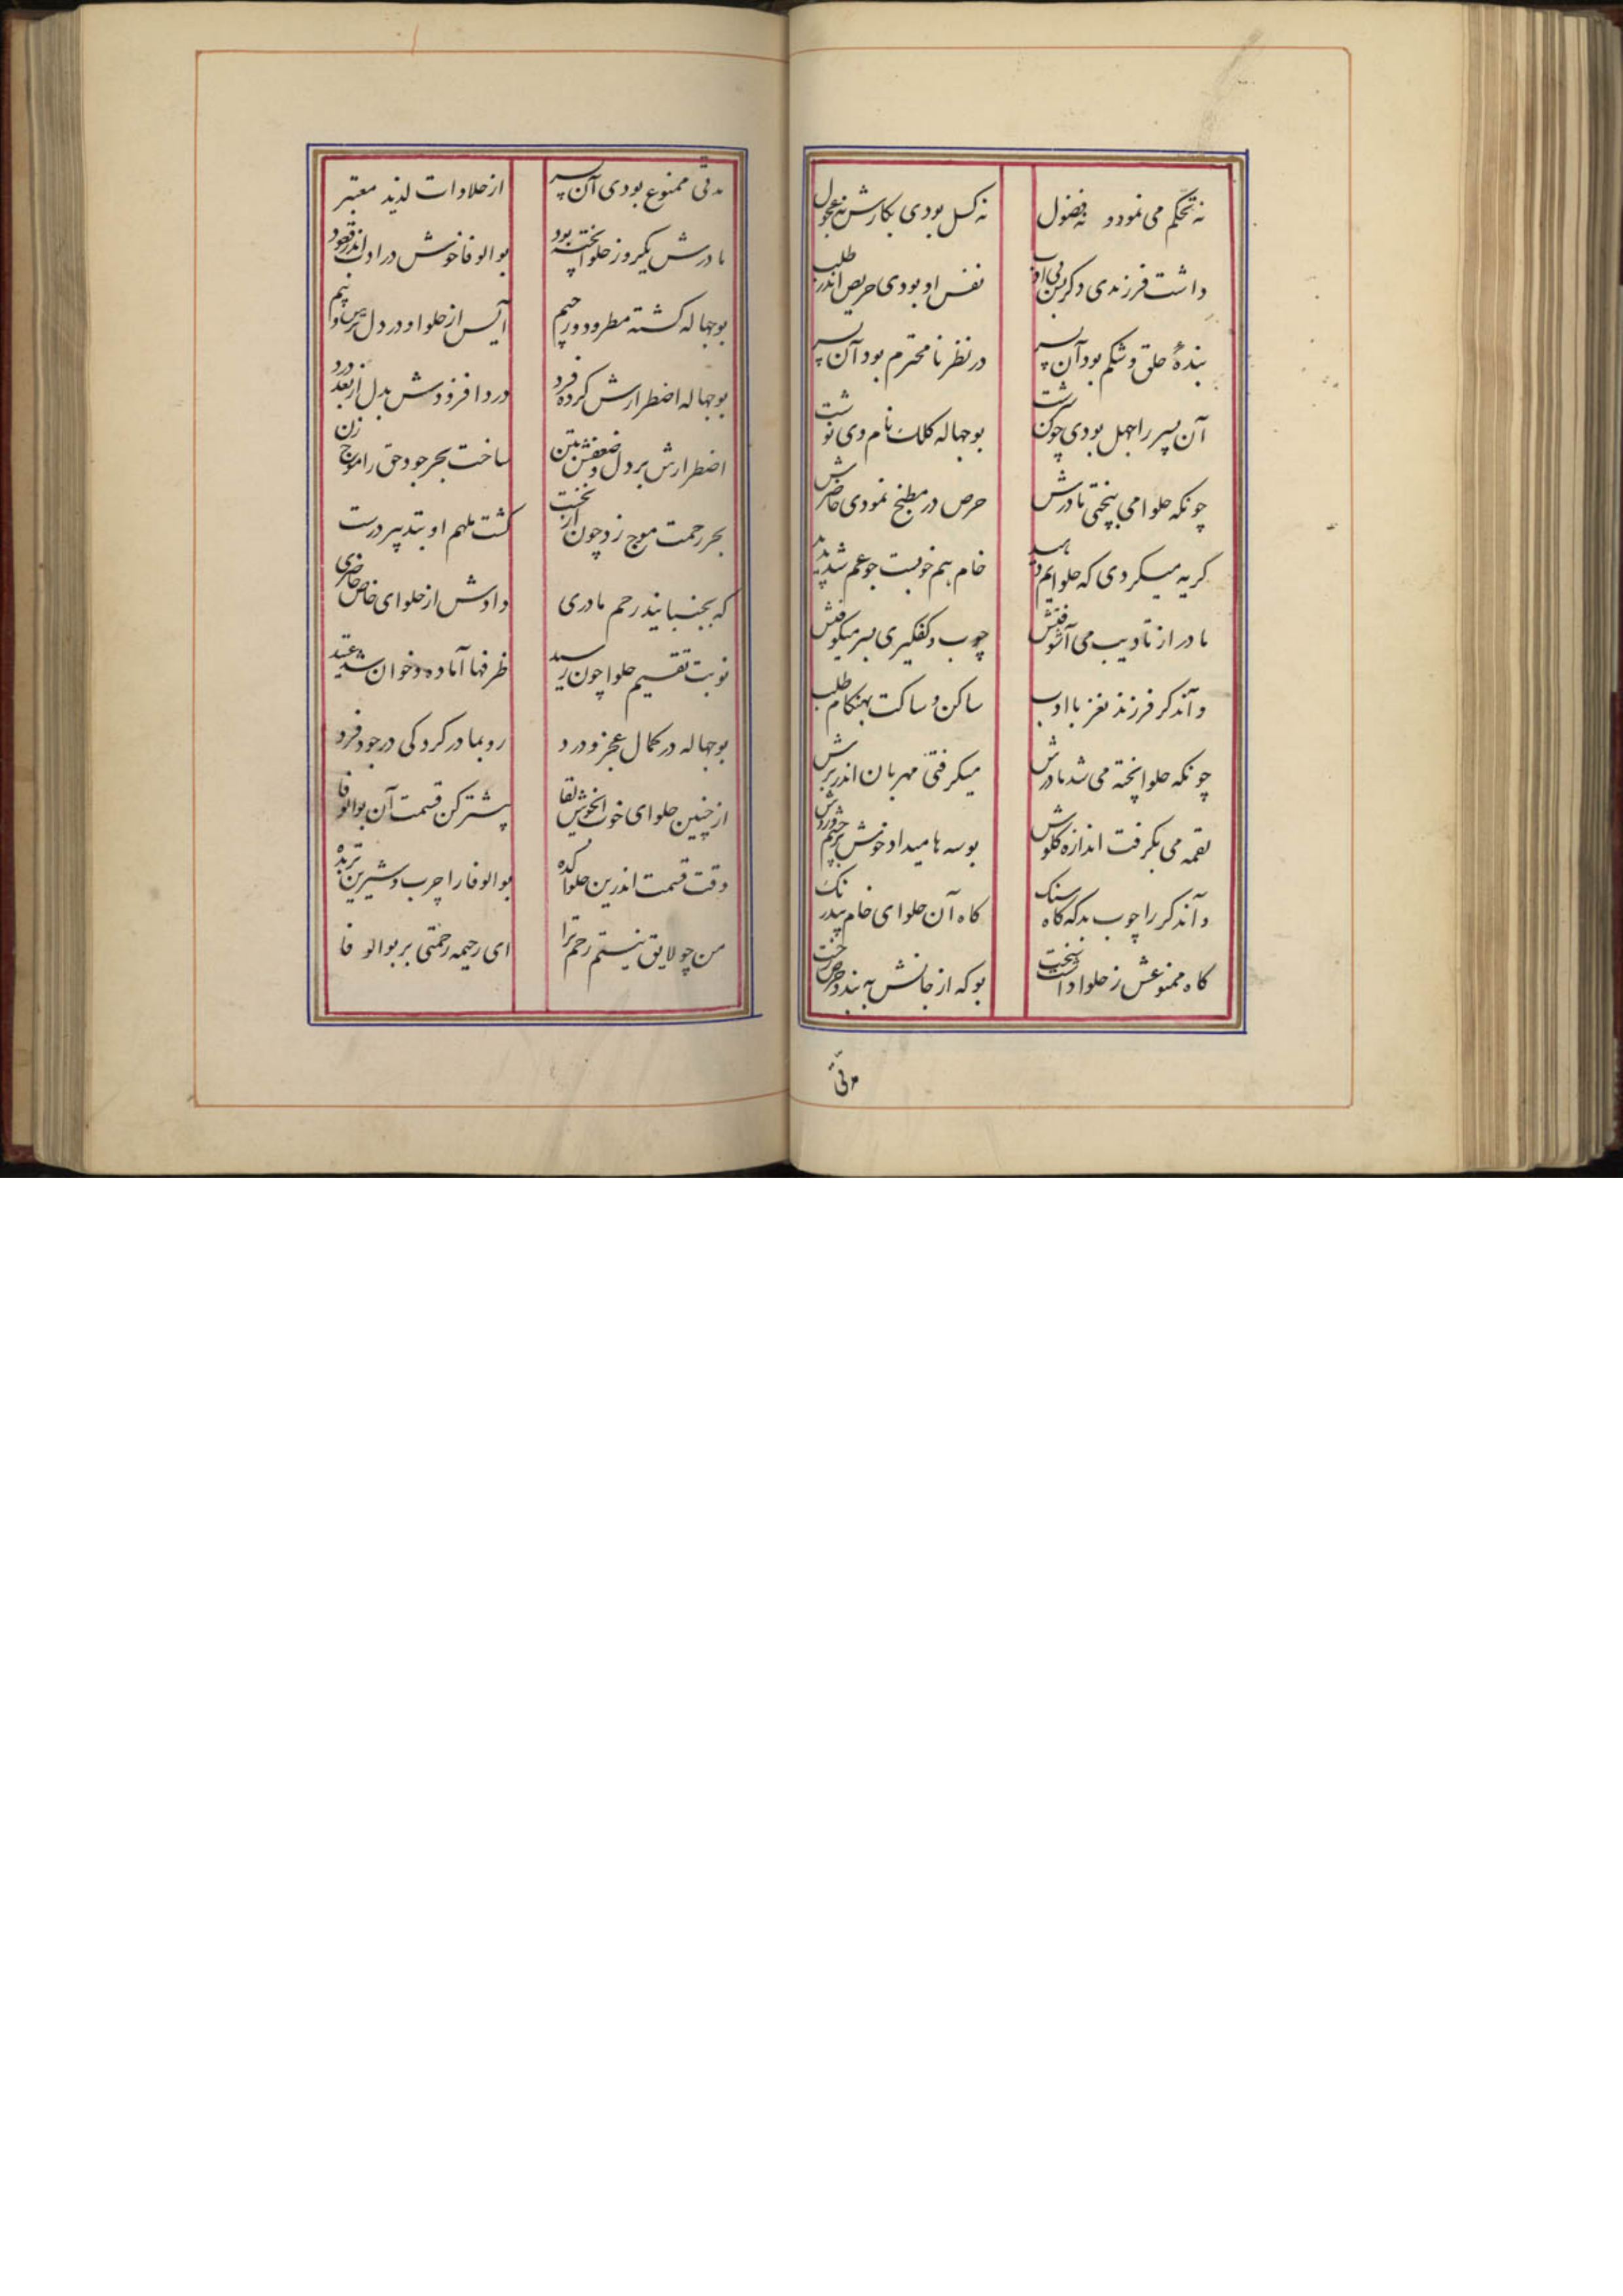 نه تحکم می نمود و نه فضول نه کسل بودی بکارش نه عجول
داشت فرزندی دگر بس بی ادب نفس او بودی حریص اندر طلب
بندهٔ حلق و شکم بود آن پسر در نظر نامحترم بود آن پسر
آن پسر را جهل بودی چون سرشت بوجهاله کلک نام وی نوشت
چونکه حلوا می بپختی مادرش حرص در مطبخ نمودی حاضرش
گریه میکردی که حلوایم دهید خام هم خوبست جوعم شد پدید
مادر از تادیب می آشوفتش چوب و کفگیری بسر میکوفتش
و آندگر فرزند نغز با ادب ساکن و ساکت بهنگام طلب
چونکه حلوا پخته می شد مادرش میگرفتی مهربان اندر برش
لقمه می بگرفت اندازه گلوش بوسه ها میداد خوش بر چشم و روش
و آندگر را چوب بد که گاه سنگ گاه آن حلوای خام بیدرنگ
گاه ممنوعش ز حلوا داشت سخت بو که از جانش به بندد حرص رخت
مدتی
مدتی ممنوع بودی آن پسر از حلاوات لذیذ معتبر
مادرش یکروز حلوا پخته بود بوالوفا خوش در ادب اندر قعود
بوجهاله گشته مطرود و رجیم آیس از حلوا و در دل ترس و بیم
بوجهاله اضطرارش کرده فرد درد افزودش بدل از بعد درد
اضطرارش بر دل و ضعفش بتن ساخت بحر جود حق را موج زن
بحر رحمت موج زد چون از نخست گشت ملهم او بتدبیر درست
که بجنباند رحم مادری دادش از حلوای خاص حاضری
نوبت تقسیم حلوا چون رسید ظرفها آماده و خوان شد عتید
بوجهاله در کمال عجز و درد رو بمادر کرد کی در جود فرد
از چنین حلوای خوب خوش لقا بیشتر کن قسمت آن بوالوفا
وقت قسمت اندرین حلواکده بوالوفا را چرب و شیرین تر بده
من چو لایق نیستم رحم ترا ای رحیمه رحمتی بر بوالوفا